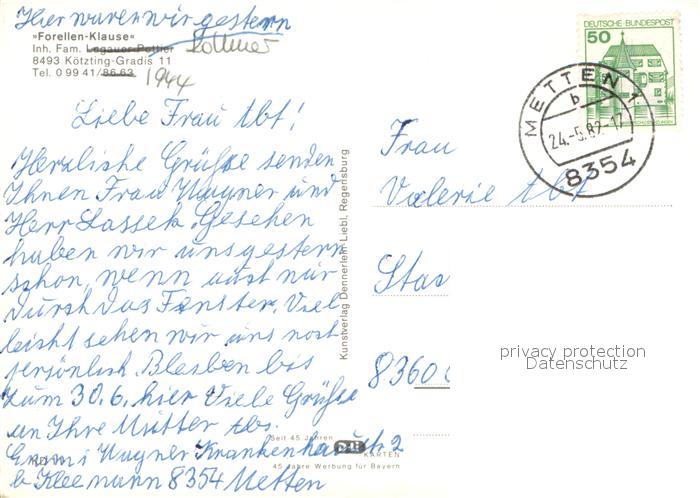 Hier waren wir gestern
»Forellen-Klause«
Inh. Fam. Legauer-Pottler Rottmer
8493 Kötzting-Gradis 11
Tel. 0 99 41/86 63 1944
Liebe Frau Abt!
Herzliche Grüße senden
Ihnen Frau Wagner und
Herr Lassek. Gesehen
haben wir uns gestern
schon, wenn auch nur
durch das Fenster. Viel
leicht sehen wir uns noch
persönlich. Bleiben bis
zum 30.6. hier Viele Grüße
an Ihre Mutter Abs.
Wagner Krankenhausstr 2
b Kleemann 8354 Metten
Seit 45 Jahren
KARTEN
45 Jahre Werbung für Bayern
Kunstverlag Dennerlein-Liebl, Regensburg
DEUTSCHE BUNDESPOST
50
METTEN 1
b
24.-5.82-17
8354
Frau
Valerie Abt
Stac
8360
privacy protection
Datenschutz